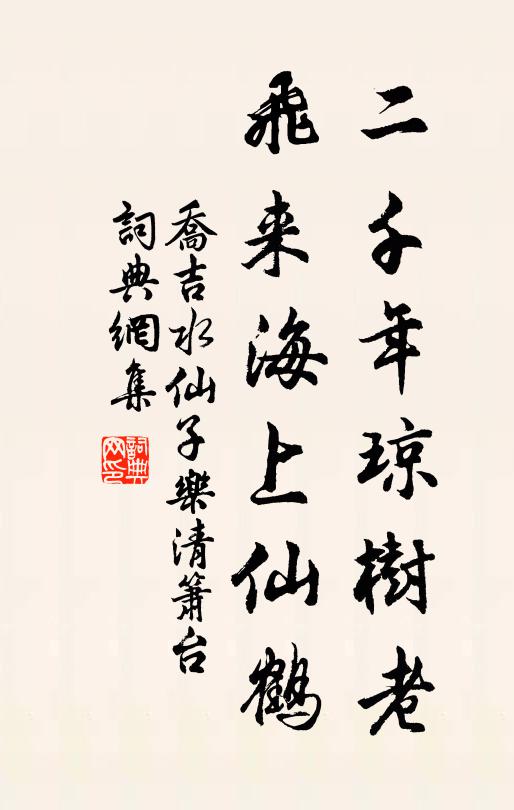 二千年琼樹老
飛来海上仙鶴
喬吉水仙子樂清簫台
詞典網集
詞典网印